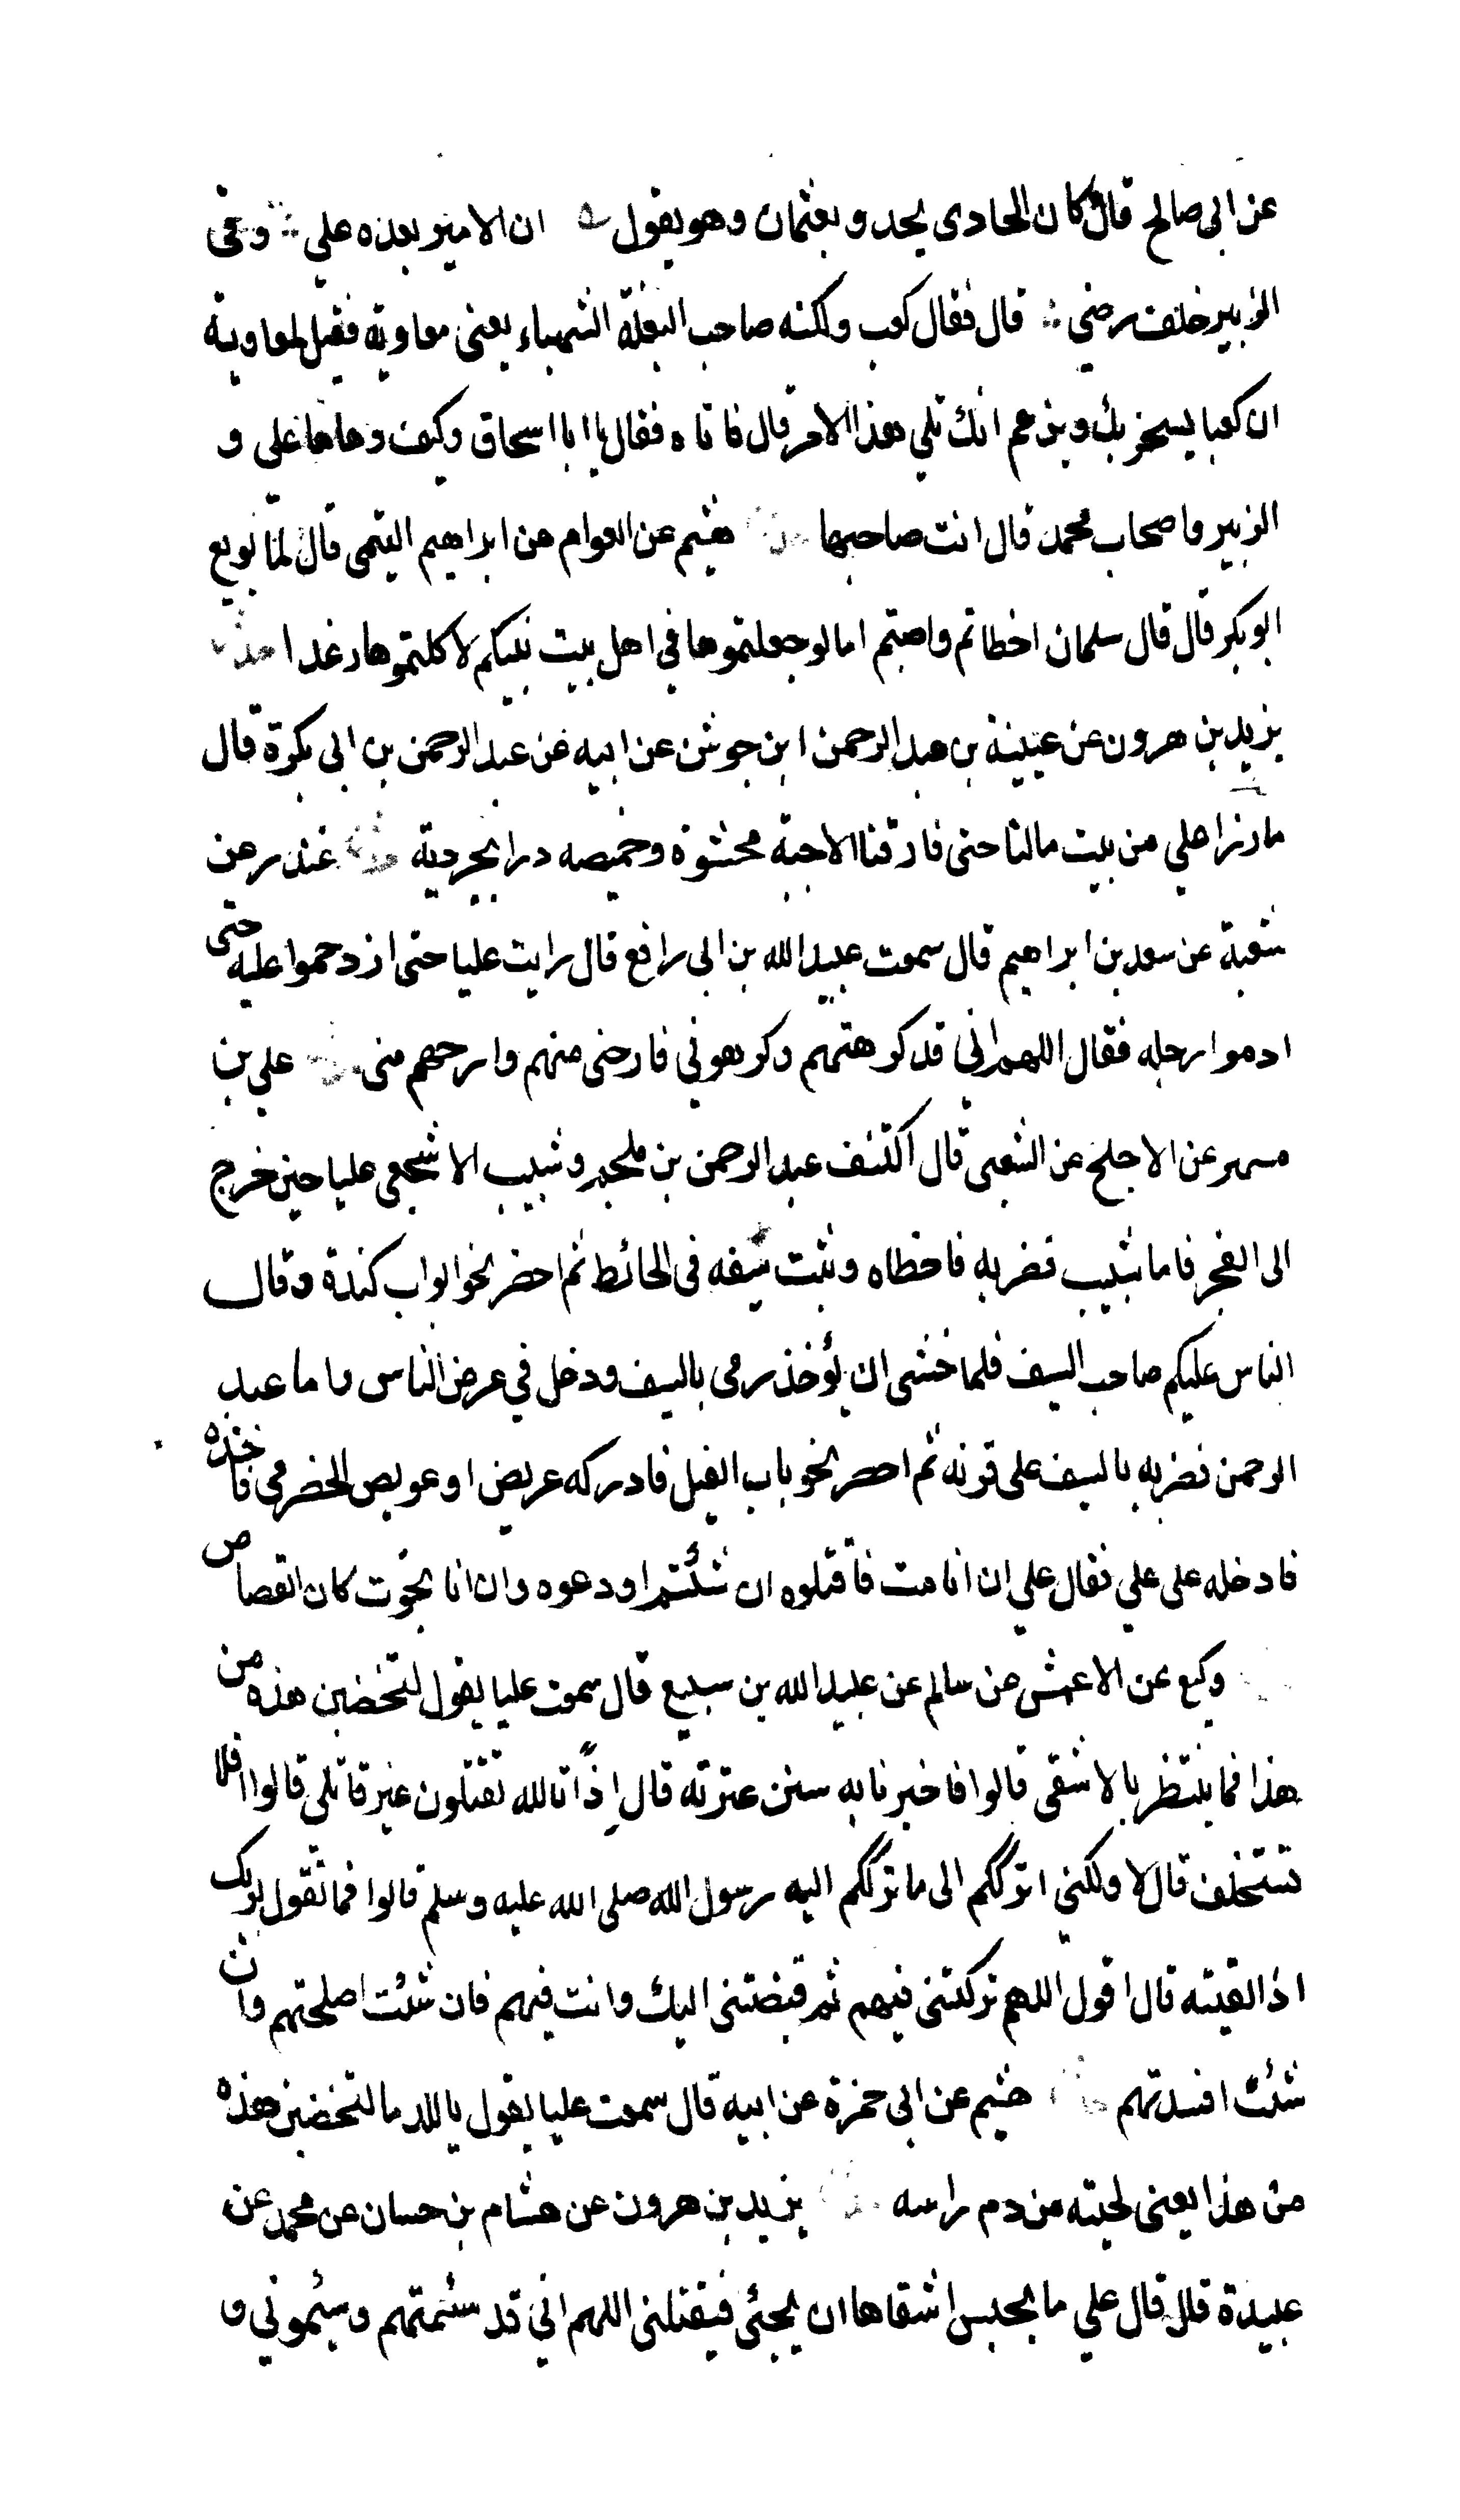 عن ابى صالح قال كان الحادى يحدو بعثمان وهو يقول ان الامير بعده على وفى
الزبير خلف رضي قال فقال كعب ولكنه صاحب البغلة الشهباء يعنى معاوية فقيل لمعاوية
ان كعبا يسخر بك ويزعم انك تلي هذا الامر قال فاتاه فقال يا ابا اسحاق وكيف وهاهنا على و
الزبير واصحاب محمد قال انت صاحبها هشيم عن العوام عن ابراهيم التيمى قال لما بويع
ابو بكر قال قال سلمان اخطاتم واصبتم اما لو جعلتموها في اهل بيت نبيكم لاكلتموها رغدا
يزيد بن هرون عن عيينة بن عبد الرحمن ابن جوشن عن ابيه عن عبد الرحمن بن ابى بكرة قال
مارزا على من بيت مالنا حتى فارقنا الاجبة محشوة وخميصه درابجردية غندر عن
شعبة عن سعد بن ابراهيم قال سمعت عبيد الله بن ابى رافع قال رايت عليا حتى ازدحموا عليه حتى
ادموا رجله فقال اللهم انى قد كرهتهم وكرهونى فارضى منهم وارحهم منى على بن
مسهر عن الاجلح عن الشعبى قال اكتنف عبد الرحمن بن ملجم وشبيب الاشجعى عليا حين خرج
الى الفجر فاما شبيب فضربه فاخطاه وثبت سيفه فى الحائط ثم احضر نحو ابواب كندة وقال
الناس عليكم صاحب السيف فلما خشى ان يؤخذ رمى بالسيف ودخل في عرض الناس واما عبد
الرحمن فضربه بالسيف على قرنه ثم احضر نحو باب الفيل فادركه عريض او عويص الحضرمى فاخذه
فادخله على على فقال على ان انا مت فاقتلوه ان شئتم او دعوه وان انا نجوت كان القصاص
وكيع عن الاعمش عن سالم عن عبد الله بن سبيع قال سمعت عليا يقول لتخضبن هذه من
هذا فما ينتظر بالاشقى قالوا فاخبرنا به عترته قال إذًا تالله تقتلون غير قاتلى قالوا افلا
تستخلف قال لا ولكني اترككم الى ما ترككم اليه رسول الله صلى الله عليه وسلم قالوا فما تقول لربك
اذا لقيته قال اقول اللهم تركتنى فيهم ثم قبضتنى اليك وانت فيهم فان شئت اصلحتهم وان
شئت افسدتهم هشيم عن ابى حمزة عن ابيه قال سمعت عليا يقول يا للدما لتخضبن هذه
من هذا يعنى لحيته من دم راسه يزيد بن هرون عن هشام بن حسان عن محمد عن
عبيدة قال قال على ما يحبس اشقاها ان يجئ فيقتلنى اللهم اني قد سئمتهم وسئموني و